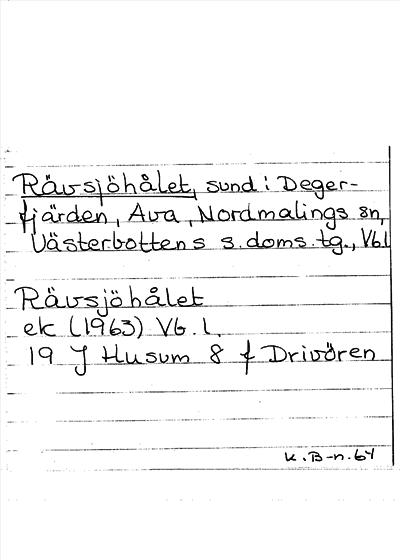 Rävsjöhålet, sund i Deger-
fjärden, Ava, Nordmalings sn,
Västerbottens s. doms. tg., Vbl
Rävsjöhålet
ek (1963) Vb. l.
19 J Husum 8 f Drivören
K. B-n. 64